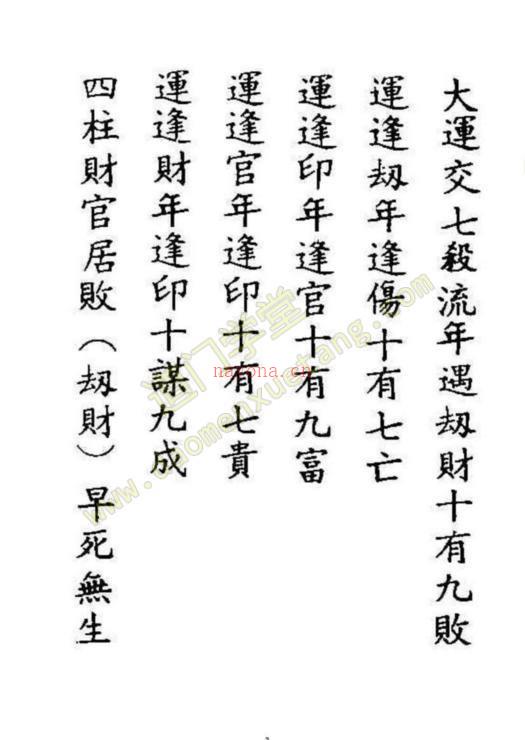 大運交七殺流年遇刼財十有九敗
運逢刼年逢傷十有七亡
運逢印年逢官十有九富
運逢官年逢印十有七貴
運逢財年逢印十謀九成
四柱財官居敗（刼財）早死無生
道门学堂
www.daomenxuetang.com
nayona.cn